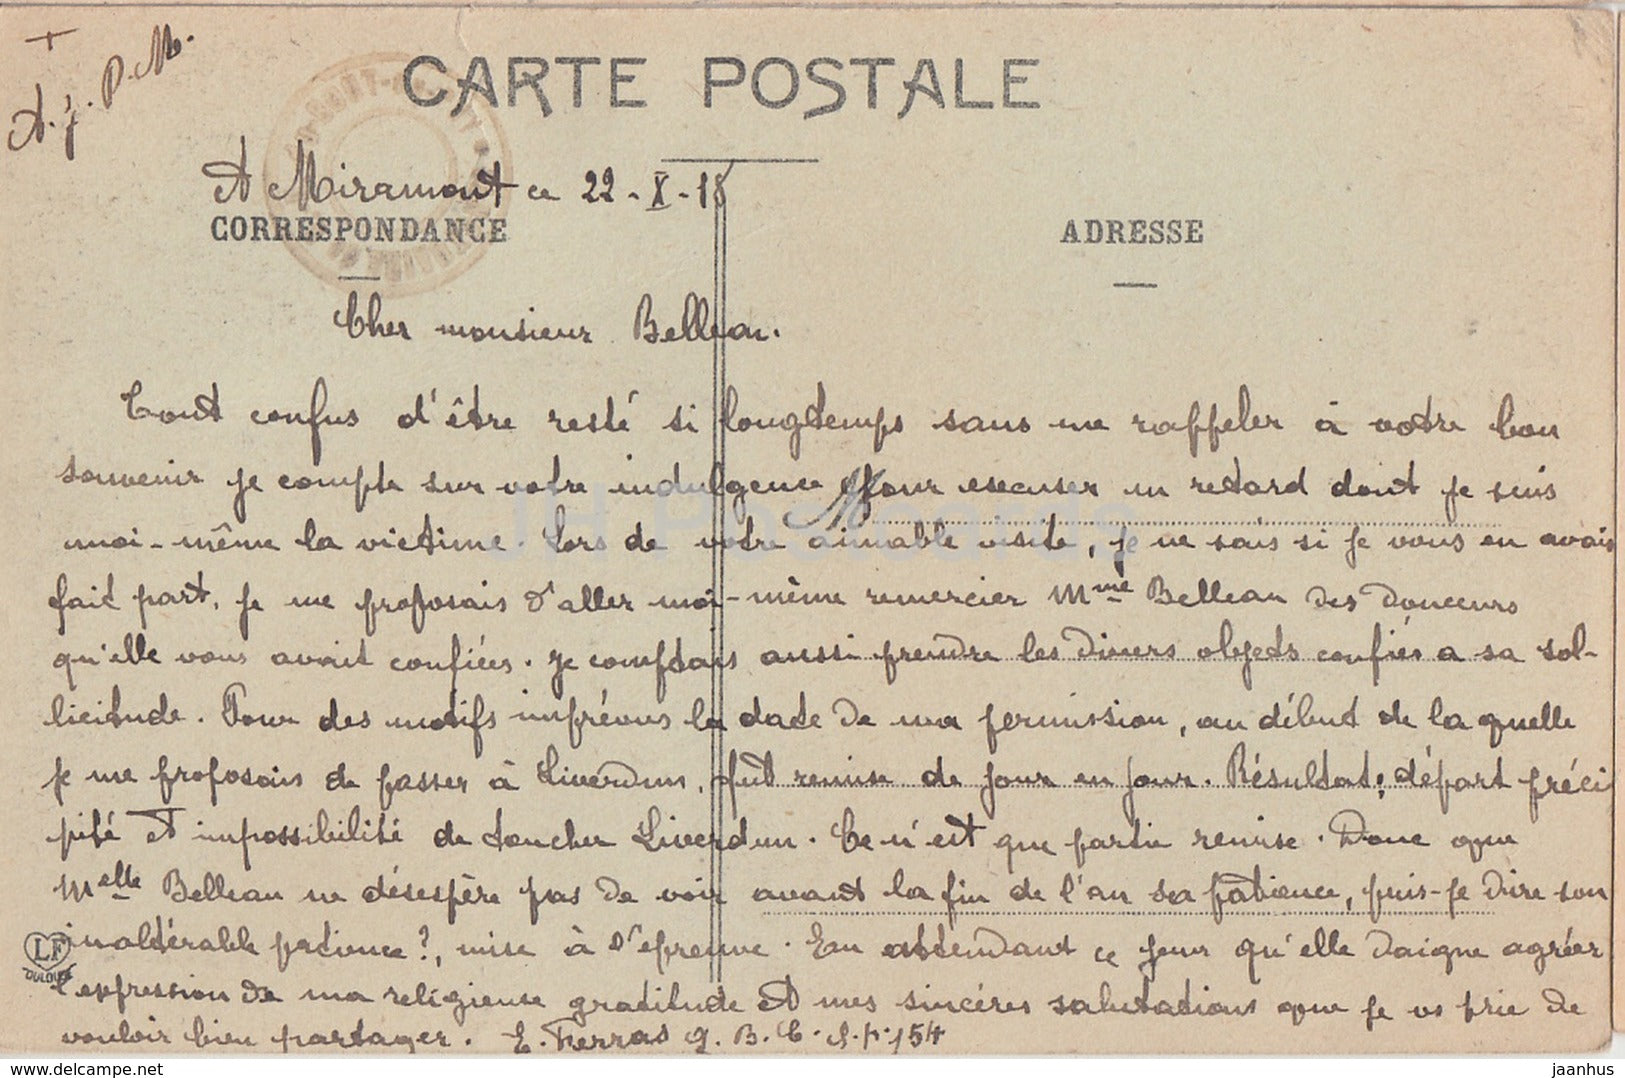 +
A. J. P. M.
CARTE POSTALE
A Miramont ce 22-X-18
CORRESPONDANCE
ADRESSE
Cher monsieur Belleau.
Tout confus d'être resté si longtemps sans me rappeler à votre bon
souvenir je compte sur votre indulgence pour excuser un retard dont je suis
moi-même la victime. Lors de votre aimable visite, je ne sais si je vous en avais
fait part, je me proposais d'aller moi-même remercier Mme Belleau des douceurs
qu'elle vous avait confiées. Je comptais aussi prendre les divers objets confiés a sa sol-
licitude. Pour des motifs imprévus la date de ma permission, au début de laquelle
je me proposais de passer à Liverdun, fut remise de jour en jour. Résultat: départ préci
pité et impossibilité de toucher Liverdun. Ce n'est que partie remise. Donc que
Melle Belleau ne désespère pas de voir avant la fin de l'an sa patience, puis-je dire son
inaltérable patience?, mise à l'épreuve. En attendant ce jour qu'elle daigne agréer
l'expression de ma religieuse gratitude et mes sincères salutations que je vs prie de
vouloir bien partager. E. Ferras G. B. C. S. P. 154
LF
TOULOUSE
JH Postcards
www.delcampe.net
jaanhus